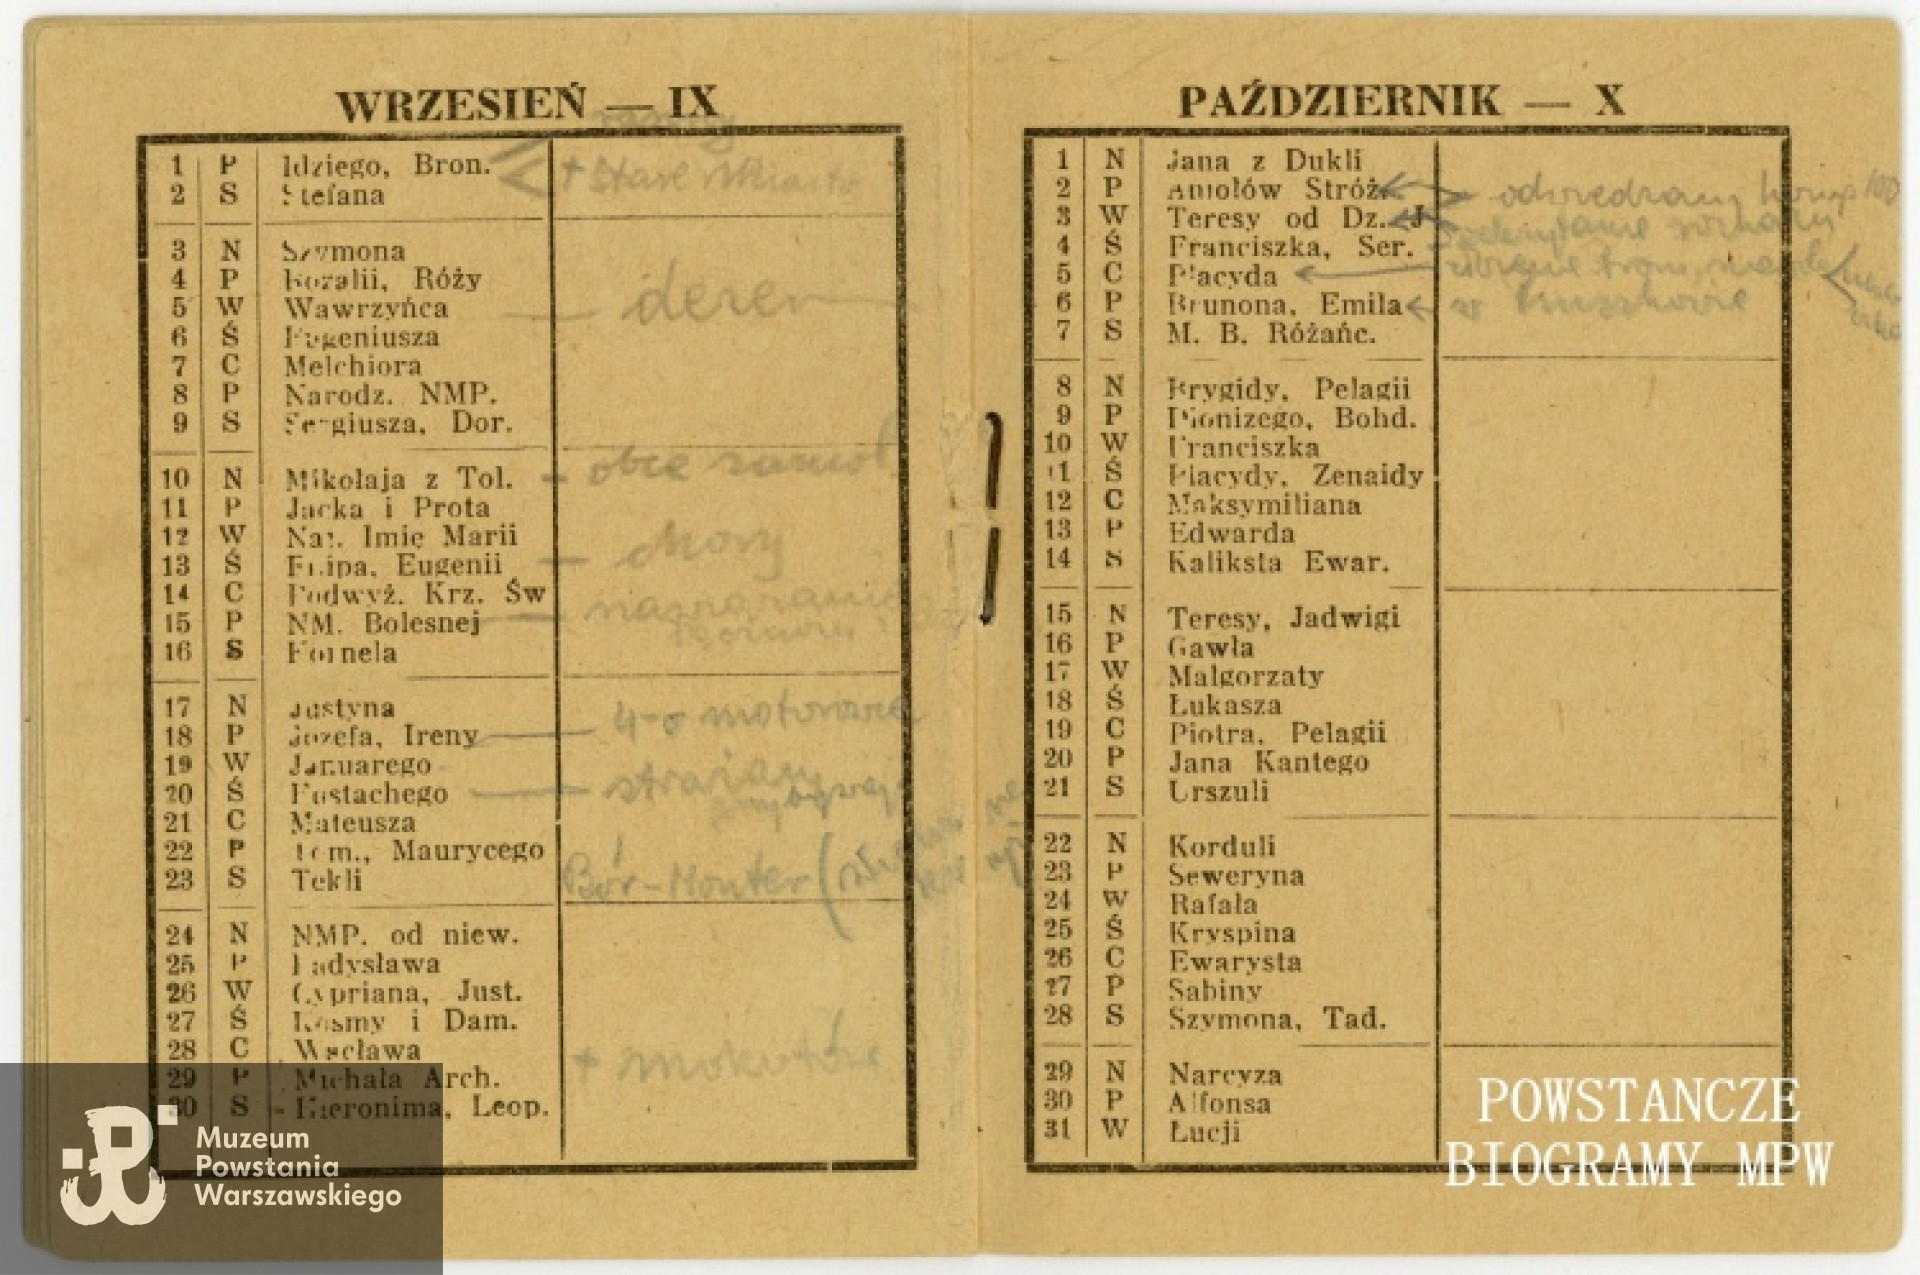 WRZESIEŃ — IX
1 P Idziego, Bron.
+ Stare Miasto
2 S Stefana
3 N Szymona
4 P Rozalii, Róży
5 W Wawrzyńca — deren
6 Ś Eugeniusza
7 C Melchiora
8 P Narodz. NMP.
9 S Sergiusza, Dor.
10 N Mikołaja z Tol. - obce samol.
11 P Jacka i Prota
12 W Naj. Imię Marii
13 Ś Filipa, Eugenii — chory
14 C Podwyż. Krz. Św
15 P NM. Bolesnej —
16 S Kornela
17 N Justyna
18 P Józefa, Ireny — 4-o motorowce
19 W Januarego
20 Ś Eustachego —
21 C Mateusza
22 P Tom., Maurycego
23 S Tekli Bór-Monter (
24 N NMP. od niew.
25 P Ładysława
26 W Cypriana, Just.
27 Ś Kosmy i Dam.
28 C Wacława + mokotów
29 P Michała Arch.
30 S Hieronima, Leop.
PAŹDZIERNIK — X
1 N Jana z Dukli
2 P Aniołów Stróż.
3 W Teresy od Dz. J
4 Ś Franciszka, Ser.
5 C Placyda
6 P Brunona, Emila w
7 S M. B. Różańc.
8 N Brygidy, Pelagii
9 P Dionizego, Bohd.
10 W Franciszka
11 Ś Placydy, Zenaidy
12 C Maksymiliana
13 P Edwarda
14 S Kaliksta Ewar.
15 N Teresy, Jadwigi
16 P Gawła
17 W Małgorzaty
18 Ś Łukasza
19 C Piotra, Pelagii
20 P Jana Kantego
21 S Urszuli
22 N Korduli
23 P Seweryna
24 W Rafała
25 Ś Kryspina
26 C Ewarysta
27 P Sabiny
28 S Szymona, Tad.
29 N Narcyza
30 P Alfonsa
31 W Łucji
Muzeum
Powstania
Warszawskiego
POWSTANCZE
BIOGRAMY MPW